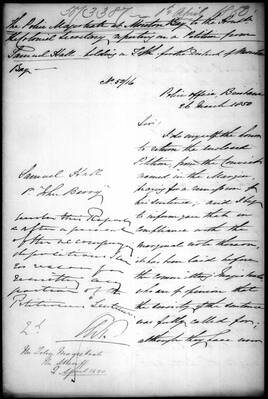 No 3387 1st April 1850
The Police Magistrate at Moreton Bay to the Honble
the Colonial Secretary reporting on a Petition from
Samuel Hall holding a T of L for the District of Moreton
Bay
No 50/16
Police Office Brisbane
26 March 1850
Sir,
I do myself the honor
to return the enclosed
Petition, from the Convict
named in the Margin
praying for a remission of
his sentence; and I beg
to inform you that in
compliance with the
marginal note thereon,
it has been laid before
the Committing Magistrate
who are of opinion that
the severity of the sentence
was fully called for;
although they have now
Samuel Hall
P. "John Barry"
under this Report
& after a perusal
of the accompanying
depositions
no reason for
remitting any
portion of the
Petitioner's Sentence
The Police Magistrate
2 April 1850